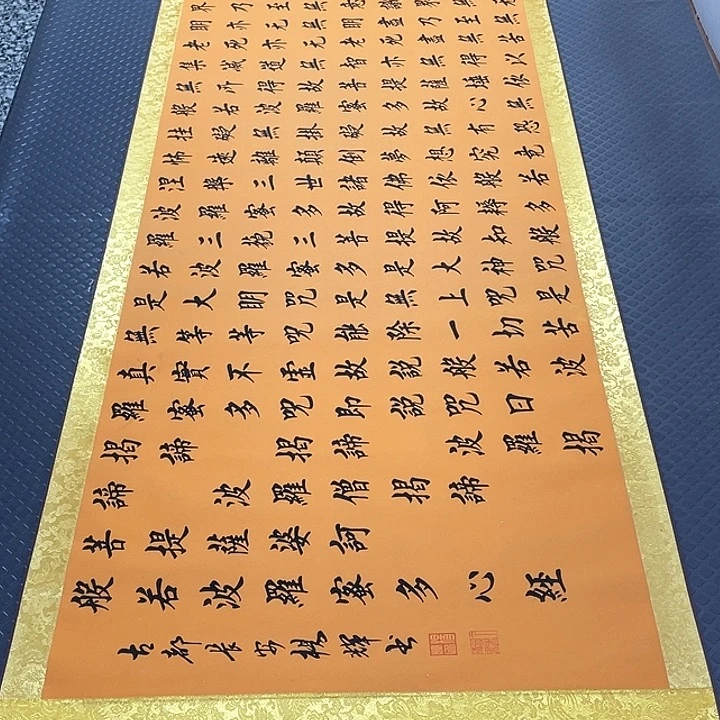 界乃
明亦无無明盡乃至無
老死亦无老死盡無苦
集滅道無智亦無得以
無所得故菩提薩埵依
般若波羅蜜多故心無
挂礙無掛礙故無有恐
怖遠離顛倒夢想究竟
涅槃三世諸佛依般若
波羅蜜多故得阿耨多
羅三藐三菩提故知般
若波羅蜜多是大神咒
是大明咒是無上咒是
無等等咒能除一切苦
真實不虛故說般若波
羅蜜多咒即說咒曰
揭諦 揭諦 波羅揭
諦 波羅僧揭諦
菩提薩婆訶
般若波羅蜜多心經
古都長安楊輝書